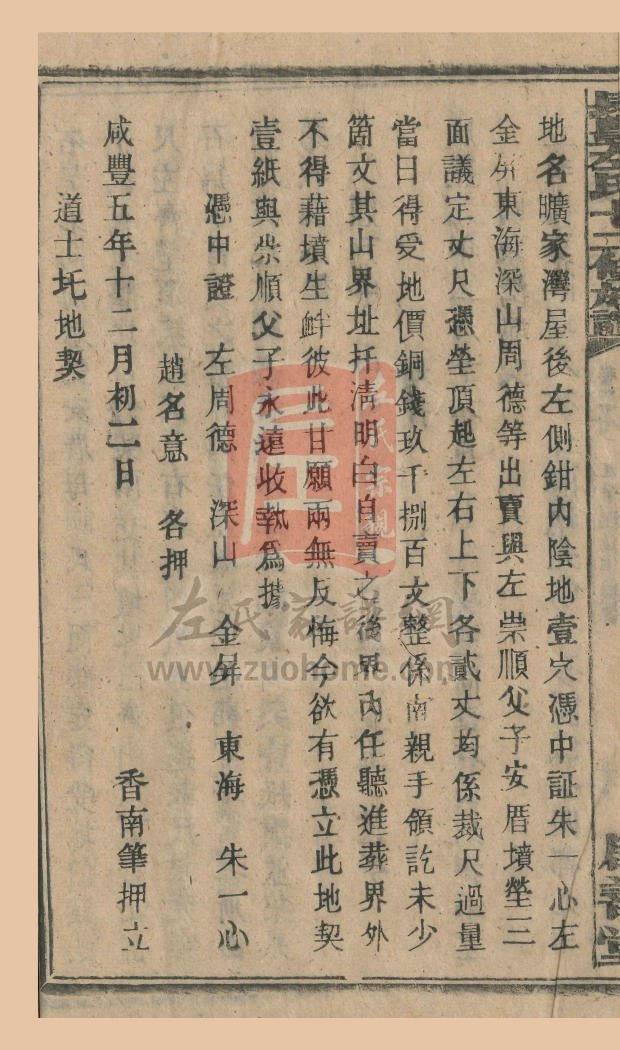 地名曠家灣屋後左側鉗內陰地壹穴憑中証朱一心左
金屏東海深山周德等出賣與左崇順父子安厝墳塋三
面議定丈尺憑塋頂起左右上下各貳丈均係裁尺過量
當日得受地價銅錢玖千捌百文整係南親手領訖未少
箇文其山界址扦清明白自賣之後界內任聽進葬界外
不得藉墳生衅彼此甘願兩無反悔今欲有憑立此地契
壹紙與崇順父子永遠收執爲據
憑中證 左周德 深山 金屏 東海 朱一心
趙名意 各押
咸豐五年十二月初二日 香南筆押立
道士圫地契
左氏宗親
左氏家譜網
www.zuohome.com